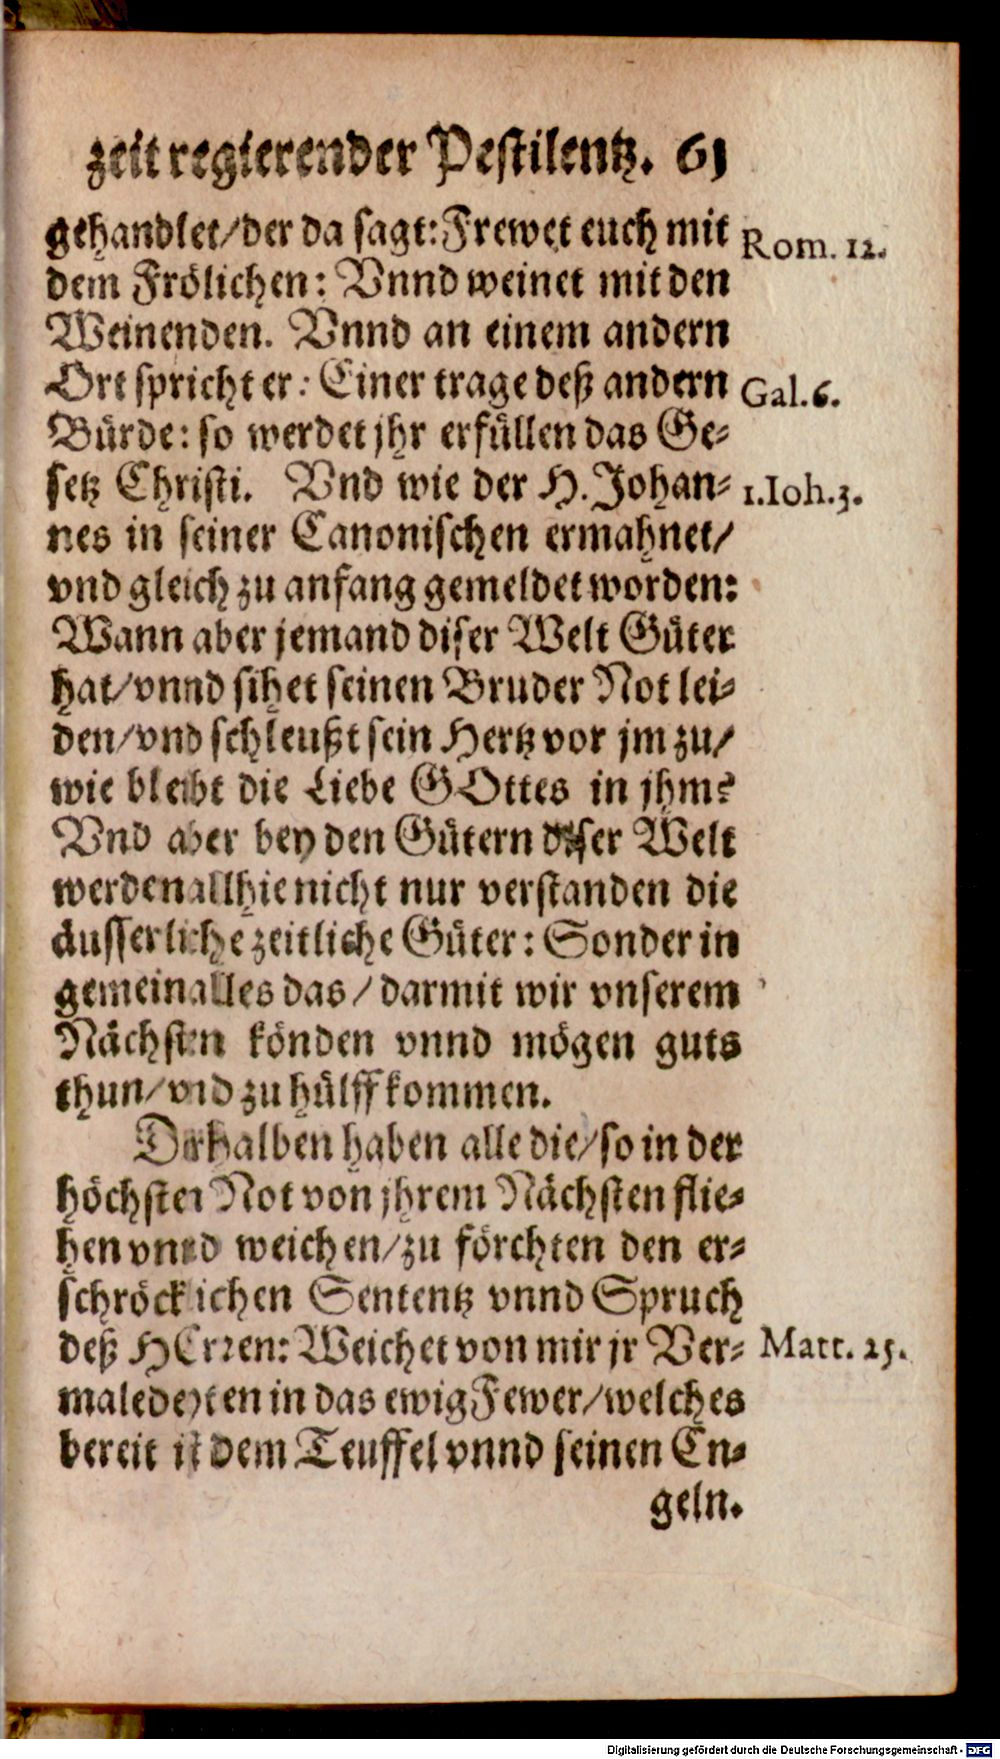 zeit regierender Pestilentz. 61
gehandlet/der da sagt: Frewet euch mit
Rom. 12.
dem Frölichen: Vnnd weinet mit den
Weinenden. Vnnd an einem andern
Ort spricht er: Einer trage deß andern
Gal. 6.
Bürde: so werdet jhr erfüllen das Ge-
setz Christi. Vnd wie der H. Johan-
1. Ioh. 3.
nes in seiner Canonischen ermahnet/
vnd gleich zu anfang gemeldet worden:
Wann aber jemand diser Welt Güter
hat/vnnd sihet seinen Bruder Not lei-
den/vnd schleußt sein Hertz vor jm zu/
wie bleibt die Liebe GOttes in jhm?
Vnd aber bey den Gütern diser Welt
werden allhie nicht nur verstanden die
äusserliche zeitliche Güter: Sonder in
gemein alles das/darmit wir vnserem
Nächsten könden vnnd mögen guts
thun/vnd zu hülff kommen.
Derhalben haben alle die/so in der
höchsten Not von jhrem Nächsten flie-
hen vnnd weichen/zu förchten den er-
schröcklichen Sententz vnnd Spruch
deß HErren: Weichet von mir jr Ver-
Matt. 25.
maledeyten in das ewig Fewer/welches
bereit ist dem Teuffel vnnd seinen En-
geln.
Digitalisierung gefördert durch die Deutsche Forschungsgemeinschaft - DFG